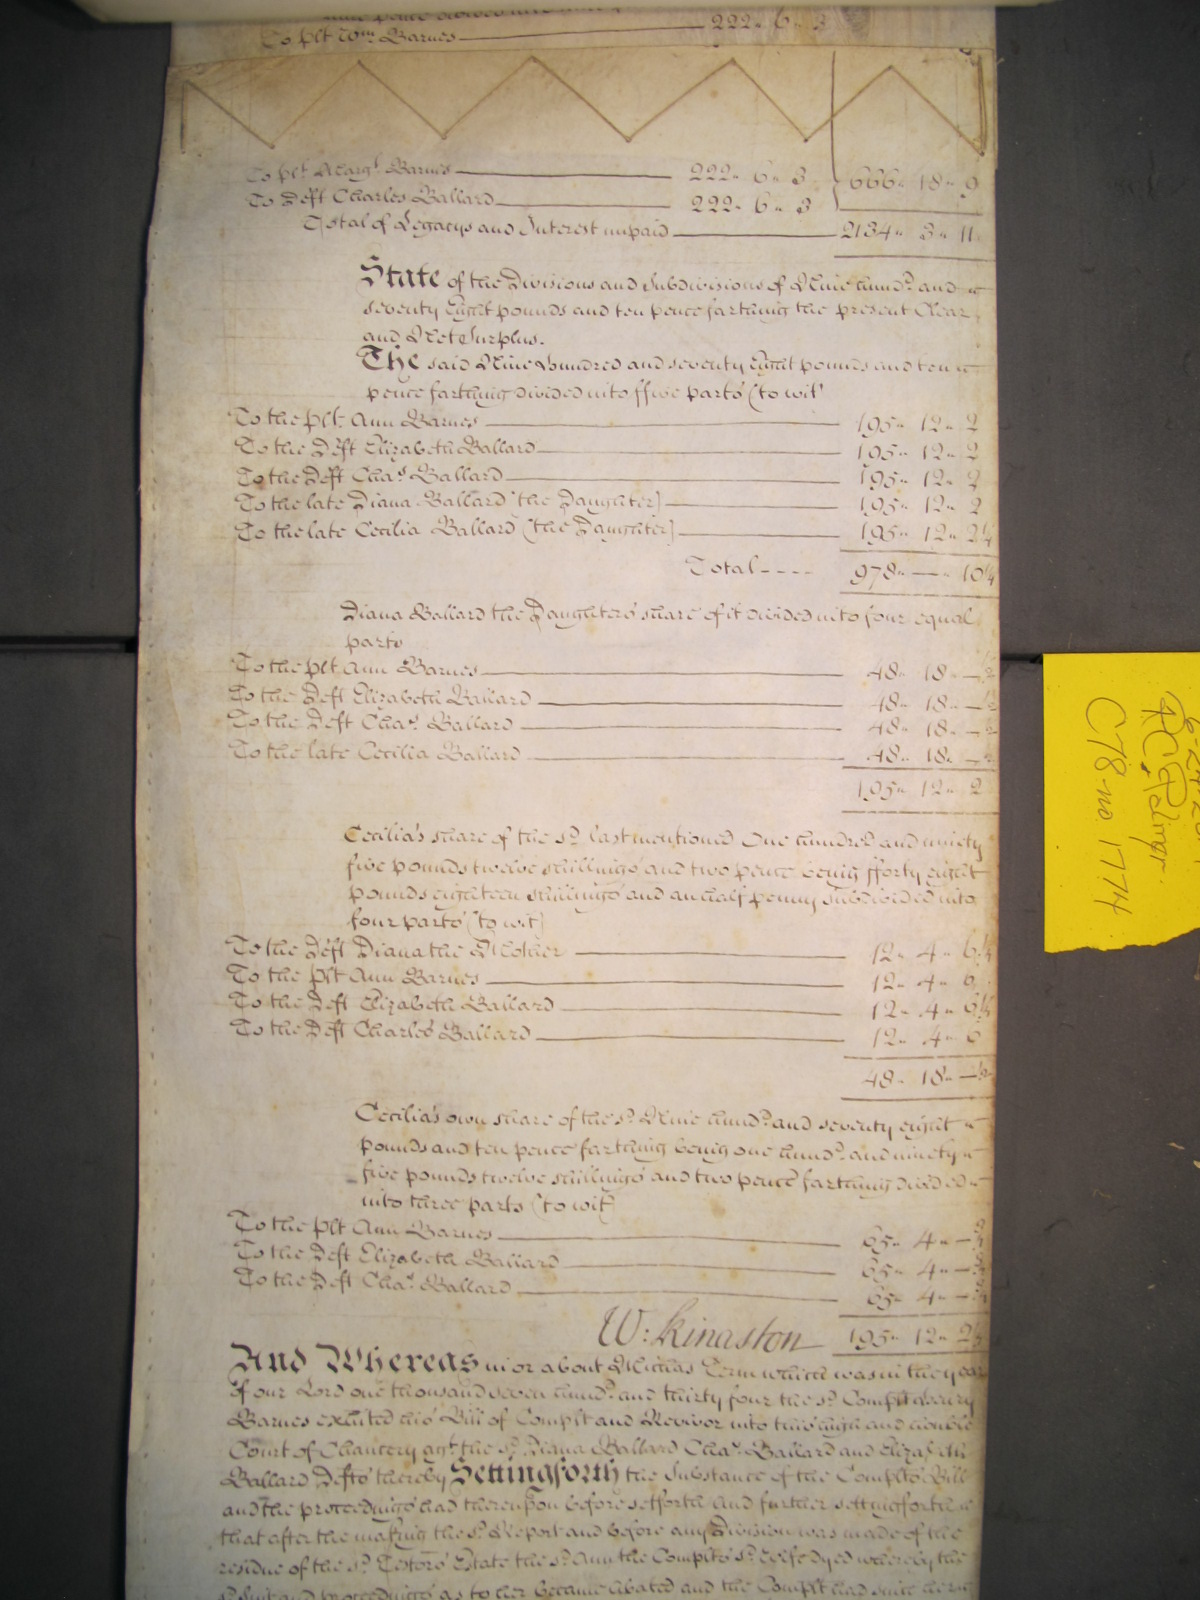 To plt Wm. Barnes 222 " 6 " 3
To plt Marg.t Barnes 222 " 6 " 3
666 " 18 " 9
To Deft Charles Ballard 222 " 6 " 3
Total of Legacys and Interest unpaid 2134 " 3 " 11
State of the Divisions and Subdivisions of Nine hund.d and
seventy Eight pounds and ten pence farthing the present Clear
and Nett Surplus.
The said Nine Hundred and seventy Eight pounds and ten
pence farthing divided into ffive parts (to wit
To the plt. Ann Barnes 195 " 12 " 2
To the Deft Elizabeth Ballard 195 " 12 " 2
To the Deft Cha.s Ballard 195 " 12 " 2
To the late Diana Ballard (the Daughter) 195 " 12 " 2
To the late Cecilia Ballard (the Daughter) 195 " 12 " 2¼
Total ---- 978 " — " 10¼
Diana Ballard the Daughters share of it divided into four equal
parts
To the plt Ann Barnes 48 " 18 " — ½
To the Deft Elizabeth Ballard 48 " 18 " — ½
To the Deft Cha.s Ballard 48 " 18 " — ½
To the late Cecilia Ballard 48 " 18 " — ½
195 " 12 " 2
Cecilia's share of the s.d last mentioned One hundred and ninety
five pounds twelve shillings and two pence being fforty eight
pounds eighteen shillings and an half penny subdivided into
four parts (to wit)
To the Deft Diana the Mother 12 " 4 " 6¼
To the Plt Ann Barnes 12 " 4 " 6
To the Deft Elizabeth Ballard 12 " 4 " 6¼
To the Deft Charles Ballard 12 " 4 " 6
48 " 18 " — ½
Cecilia's own share of the s.d Nine hund.d and seventy eight
pounds and ten pence farthing being one hund.d and ninety
five pounds twelve shillings and two pence farthing divided
into three parts (to wit)
To the Plt Ann Barnes 65 " 4 " — ¾
To the Deft Elizabeth Ballard 65 " 4 " — ¾
To the Deft Cha.s Ballard 65 " 4 " — ¾
W: Kinaston 195 " 12 " 2¼
And Whereas in or about Michas Term which was in the year
of our Lord one thousand seven hund.d and thirty four the s.d Complt
Barnes exhited his Bill of Complt and Revivor into this high and honble
Court of Chancery ag.t the s.d Diana Ballard Cha.s Ballard and Elizabeth
Ballard Defts thereby Settingforth the Substance of the Complts Bill
and the proceedings had thereupon before setforth And further settingforth
that after the making the s.d Report and before any Division was made of the
residue of the s.d Testors Estate the s.d Ann the Complts s.d Wife dyed whereby the
s.d Suit and proceedings as to her became Abated and the Complt had since
C78 no 1774